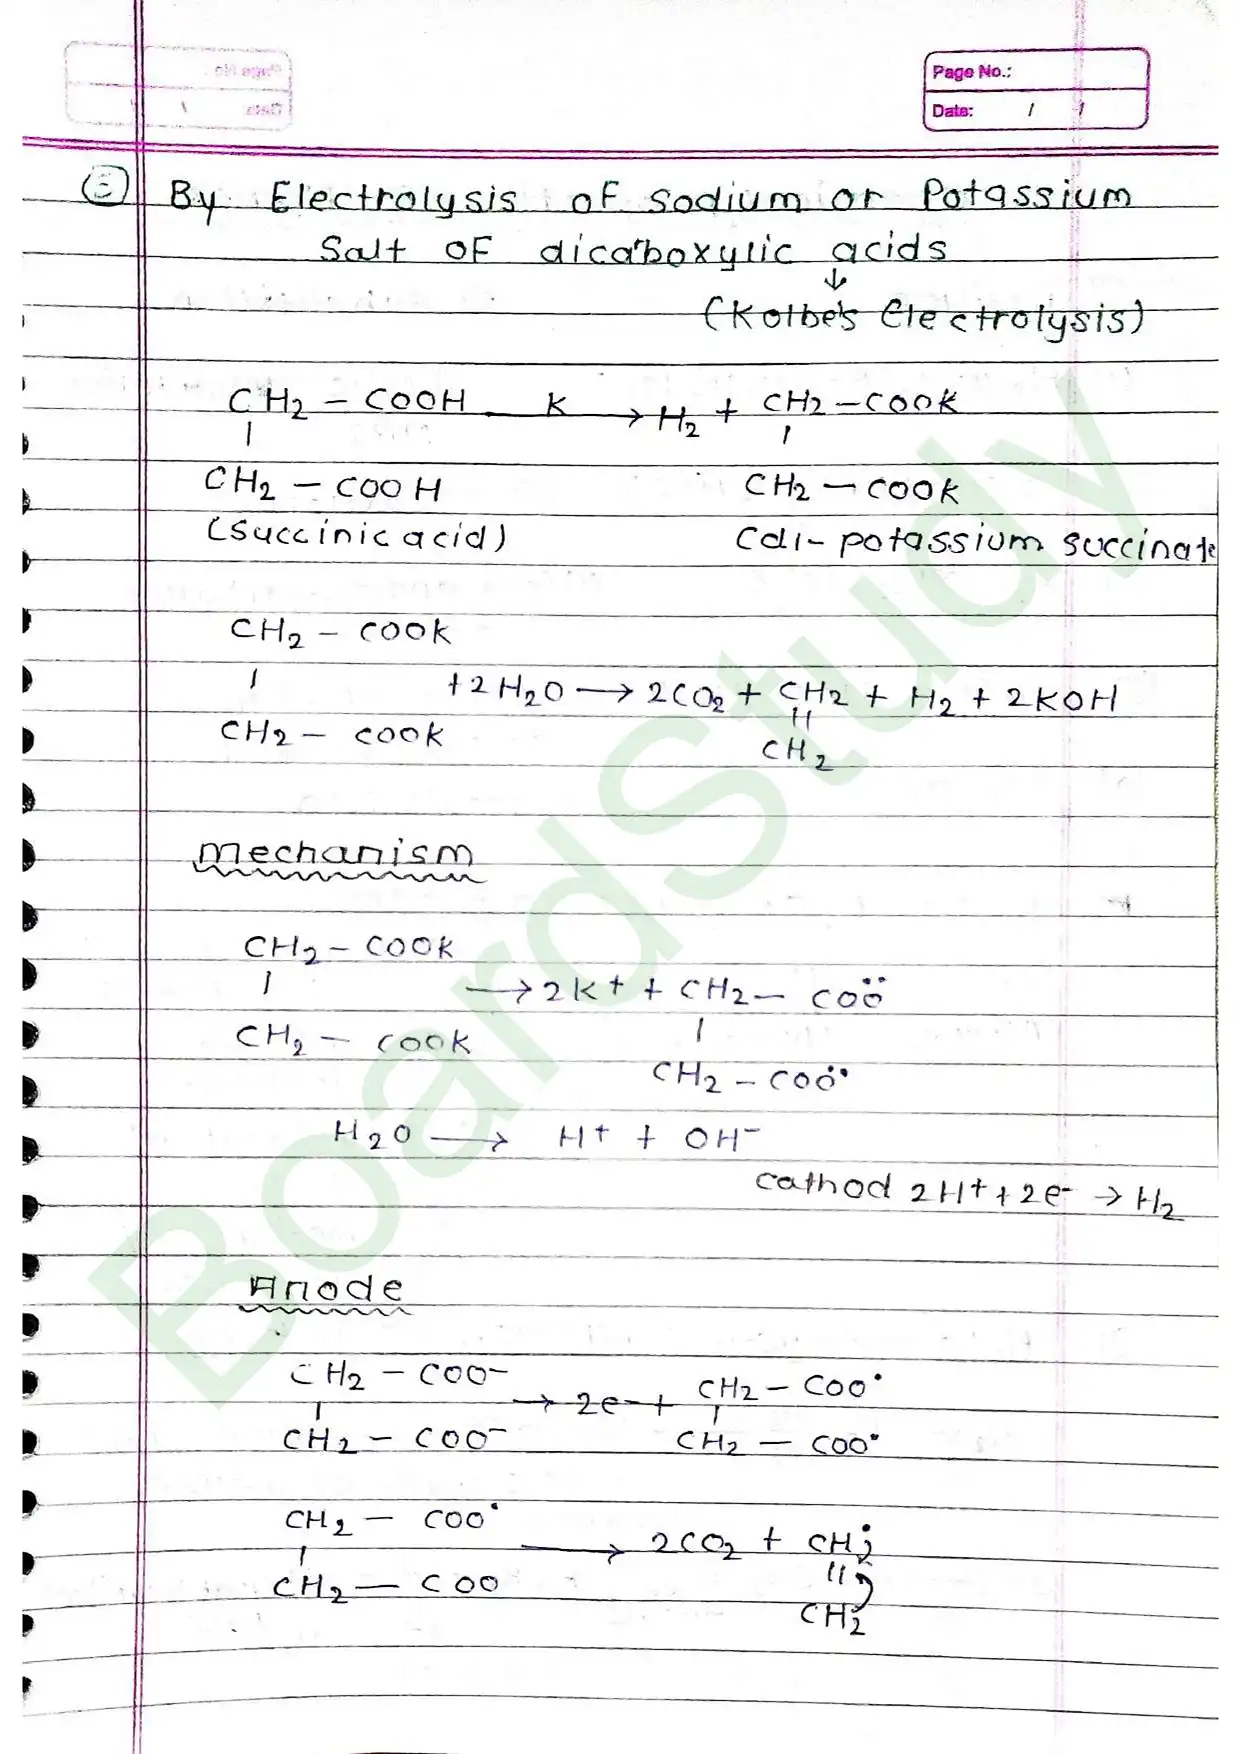 Page No.:
Date: / /
By Electrolysis of Sodium or Potassium
Salt of dicarboxylic acids
↓
(Kolbe's Electrolysis)
CH₂ – COOH —K→ H₂ + CH₂ – COOK
| |
CH₂ – COOH CH₂ – COOK
(Succinic acid) (di-potassium succinate
CH₂ – COOK
| +2H₂O → 2CO₂ + CH₂ + H₂ + 2KOH
||
CH₂ – COOK CH₂
Mechanism
CH₂ – COOK
| → 2K+ + CH₂ – COÖ
CH₂ – COOK |
CH₂ – COÖ
H₂O → H+ + OH–
cathod 2H+ + 2e– → H₂
Anode
CH₂ – COO– → 2e– + CH₂ – COO•
| |
CH₂ – COO– CH₂ – COO•
CH₂ – COO• → 2CO₂ + CH₂•
| ||
CH₂ – COO CH₂
BoardStudy